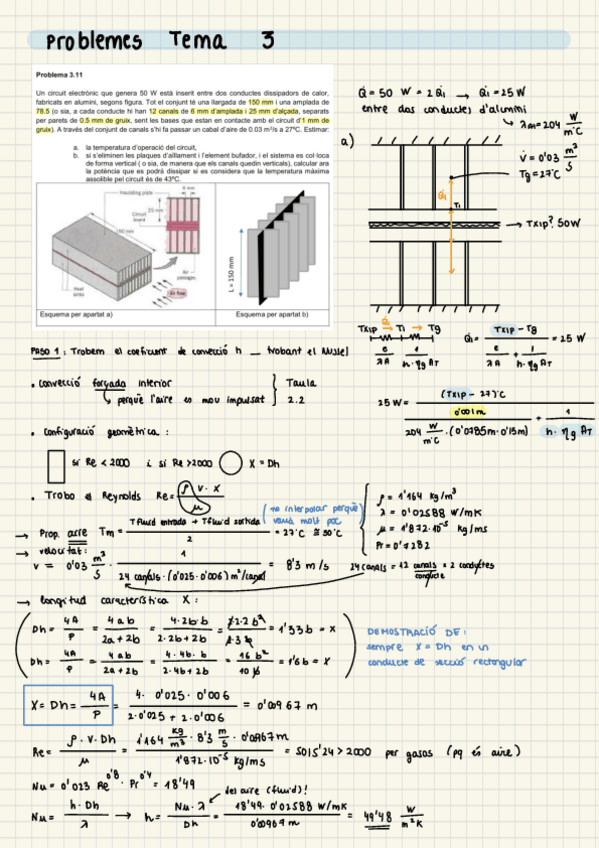 Problemes Tema 3
Problema 3.11
Un circuit electrònic que genera 50 W està inserit entre dos conductes dissipadors de calor,
fabricats en alumini, segons figura. Tot el conjunt té una llargada de 150 mm i una amplada de
78.5 (o sia, a cada conducte hi han 12 canals de 6 mm d'amplada i 25 mm d'alçada, separats
per parets de 0.5 mm de gruix, sent les bases que estan en contacte amb el circuit d'1 mm de
gruix). A través del conjunt de canals s'hi fa passar un cabal d'aire de 0.03 m³/s a 27ºC. Estimar:
a. la temperatura d'operació del circuit,
b. si s'eliminen les plaques d'aïllament i l'element bufador, i el sistema es col·loca
de forma vertical ( o sia, de manera que els canals quedin verticals), calcular ara
la potència que es podrà dissipar si es considera que la temperatura màxima
assolible pel circuit és de 43ºC.
Insulating plates
6 mm
25 mm
Circuit board
150 mm
Heat sinks
Air passages
Air flow
L = 150 mm
Esquema per apartat a)
Esquema per apartat b)
Q̇ = 50 W = 2Q̇1 → Q̇1 = 25 W
entre dos conductes d'alumini
λAl = 204 W/m°C
a)
V̇ = 0'03 m³/s
Tg = 27°C
Q̇1
T1
→ Txip? 50W
Q̇1
Txip → T1 → Tg
e/λA 1/h·ηg AT
Q̇1 = (Txip - Tg) / (e/λA + 1/h·ηg AT) = 25 W
PASO 1: Trobem el coeficient de convecció h _ trobant el Nusselt
• Convecció forçada interior
↳ perquè l'aire es mou impulsat
Taula
2.2
25 W = (Txip - 27)°C / (0'001m / 204 W/m°C · (0'0785m · 0'15m) + 1 / h · ηg AT)
• Configuració geomètrica:
si Re < 2000 i si Re > 2000 X = Dh
• Trobo el Reynolds Re = ρ V · X / μ
(no interpolar perquè varia molt poc)
ρ = 1'164 kg/m³
λ = 0'02588 W/mK
μ = 1'872·10⁻⁵ kg/ms
Pr = 0'7282
→ Prop. aire Tm = (Tfluid entrada + Tfluid sortida) / 2 = 27°C ≅ 30°C
→ velocitat:
v = 0'03 m³/s · 1 / 24 canals · (0'025 · 0'006) m²/canal = 8'3 m/s
24 canals = 12 canals/conducte × 2 conductes
→ longitud característica X:
Dh = 4A/P = 4ab / 2a+2b = 4·2b·b / 2·2b+2b = 4·2·b² / 2·3b = 1'33b = X
Dh = 4A/P = 4ab / 2a+2b = 4·4b·b / 2·4b+2b = 16b² / 10b = 1'6b = X
DEMOSTRACIÓ DE:
sempre X = Dh en un
conducte de secció rectangular
X = Dh = 4A/P = 4 · 0'025 · 0'006 / 2·0'025 + 2·0'006 = 0'00967 m
Re = ρ · V · Dh / μ = 1'164 kg/m³ · 8'3 m/s · 0'0967m / 1'872·10⁻⁵ kg/ms = 5015'24 > 2000 per gasos (pq és aire)
Nu = 0'023 Re^0'8 · Pr^0'4 = 18'49
del aire (fluid)!
Nu = h · Dh / λ → h = Nu · λ / Dh = 18'49 · 0'02588 W/mK / 0'00967 m = 49'48 W/m²K